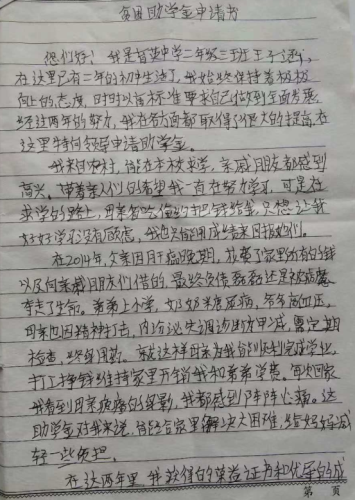 国助学金申请书
您们好！我是 中学二年级三班王子涵，
在这里已有二年的初中生活了，我始终保持着积极
向上的态度，时时以高标准要求自己做到全面发展。
经过两年的努力，我在各方面都取得了很大的提高，在
这里特向领导申请助学金。
我来自农村，能在本校求学，亲戚朋友都感到
高兴。带着亲人们的希望我一直在努力学习，可是在
求学的路上，母亲省吃俭的把钱给我，只想让我
好好学习没有顾虑，我也只能用成绩来回报她们。
在2014年，父亲因肝癌晚期，花费了家里所有的钱
以及向亲戚朋友们借的，最终负债磊磊还是被病魔
夺走了生命。弟弟上小学，奶奶糖尿病，爷爷高血压，
母亲也因精神打击，内分泌失调 甲减，需定期
检查，终身用药。就这样母亲为我能顺利完成学业，
打工挣钱维持家里开销我和弟弟学费。每次回家
我看到母亲疲惫的身影，我都感到阵阵心痛。这
助学金对我来说，能给家里解决大困难，给妈妈减
轻一些负担。
在这两年里，我获得的荣誉证书和优异的成
第 页